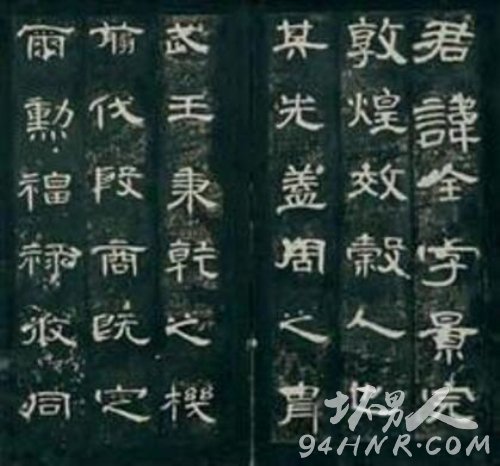 君諱全字景完
敦煌效穀人也
其先蓋周之胄
武王秉乾之機
翦伐殷商既定
爾勳福祿攸同
坏男人
94HNR.COM